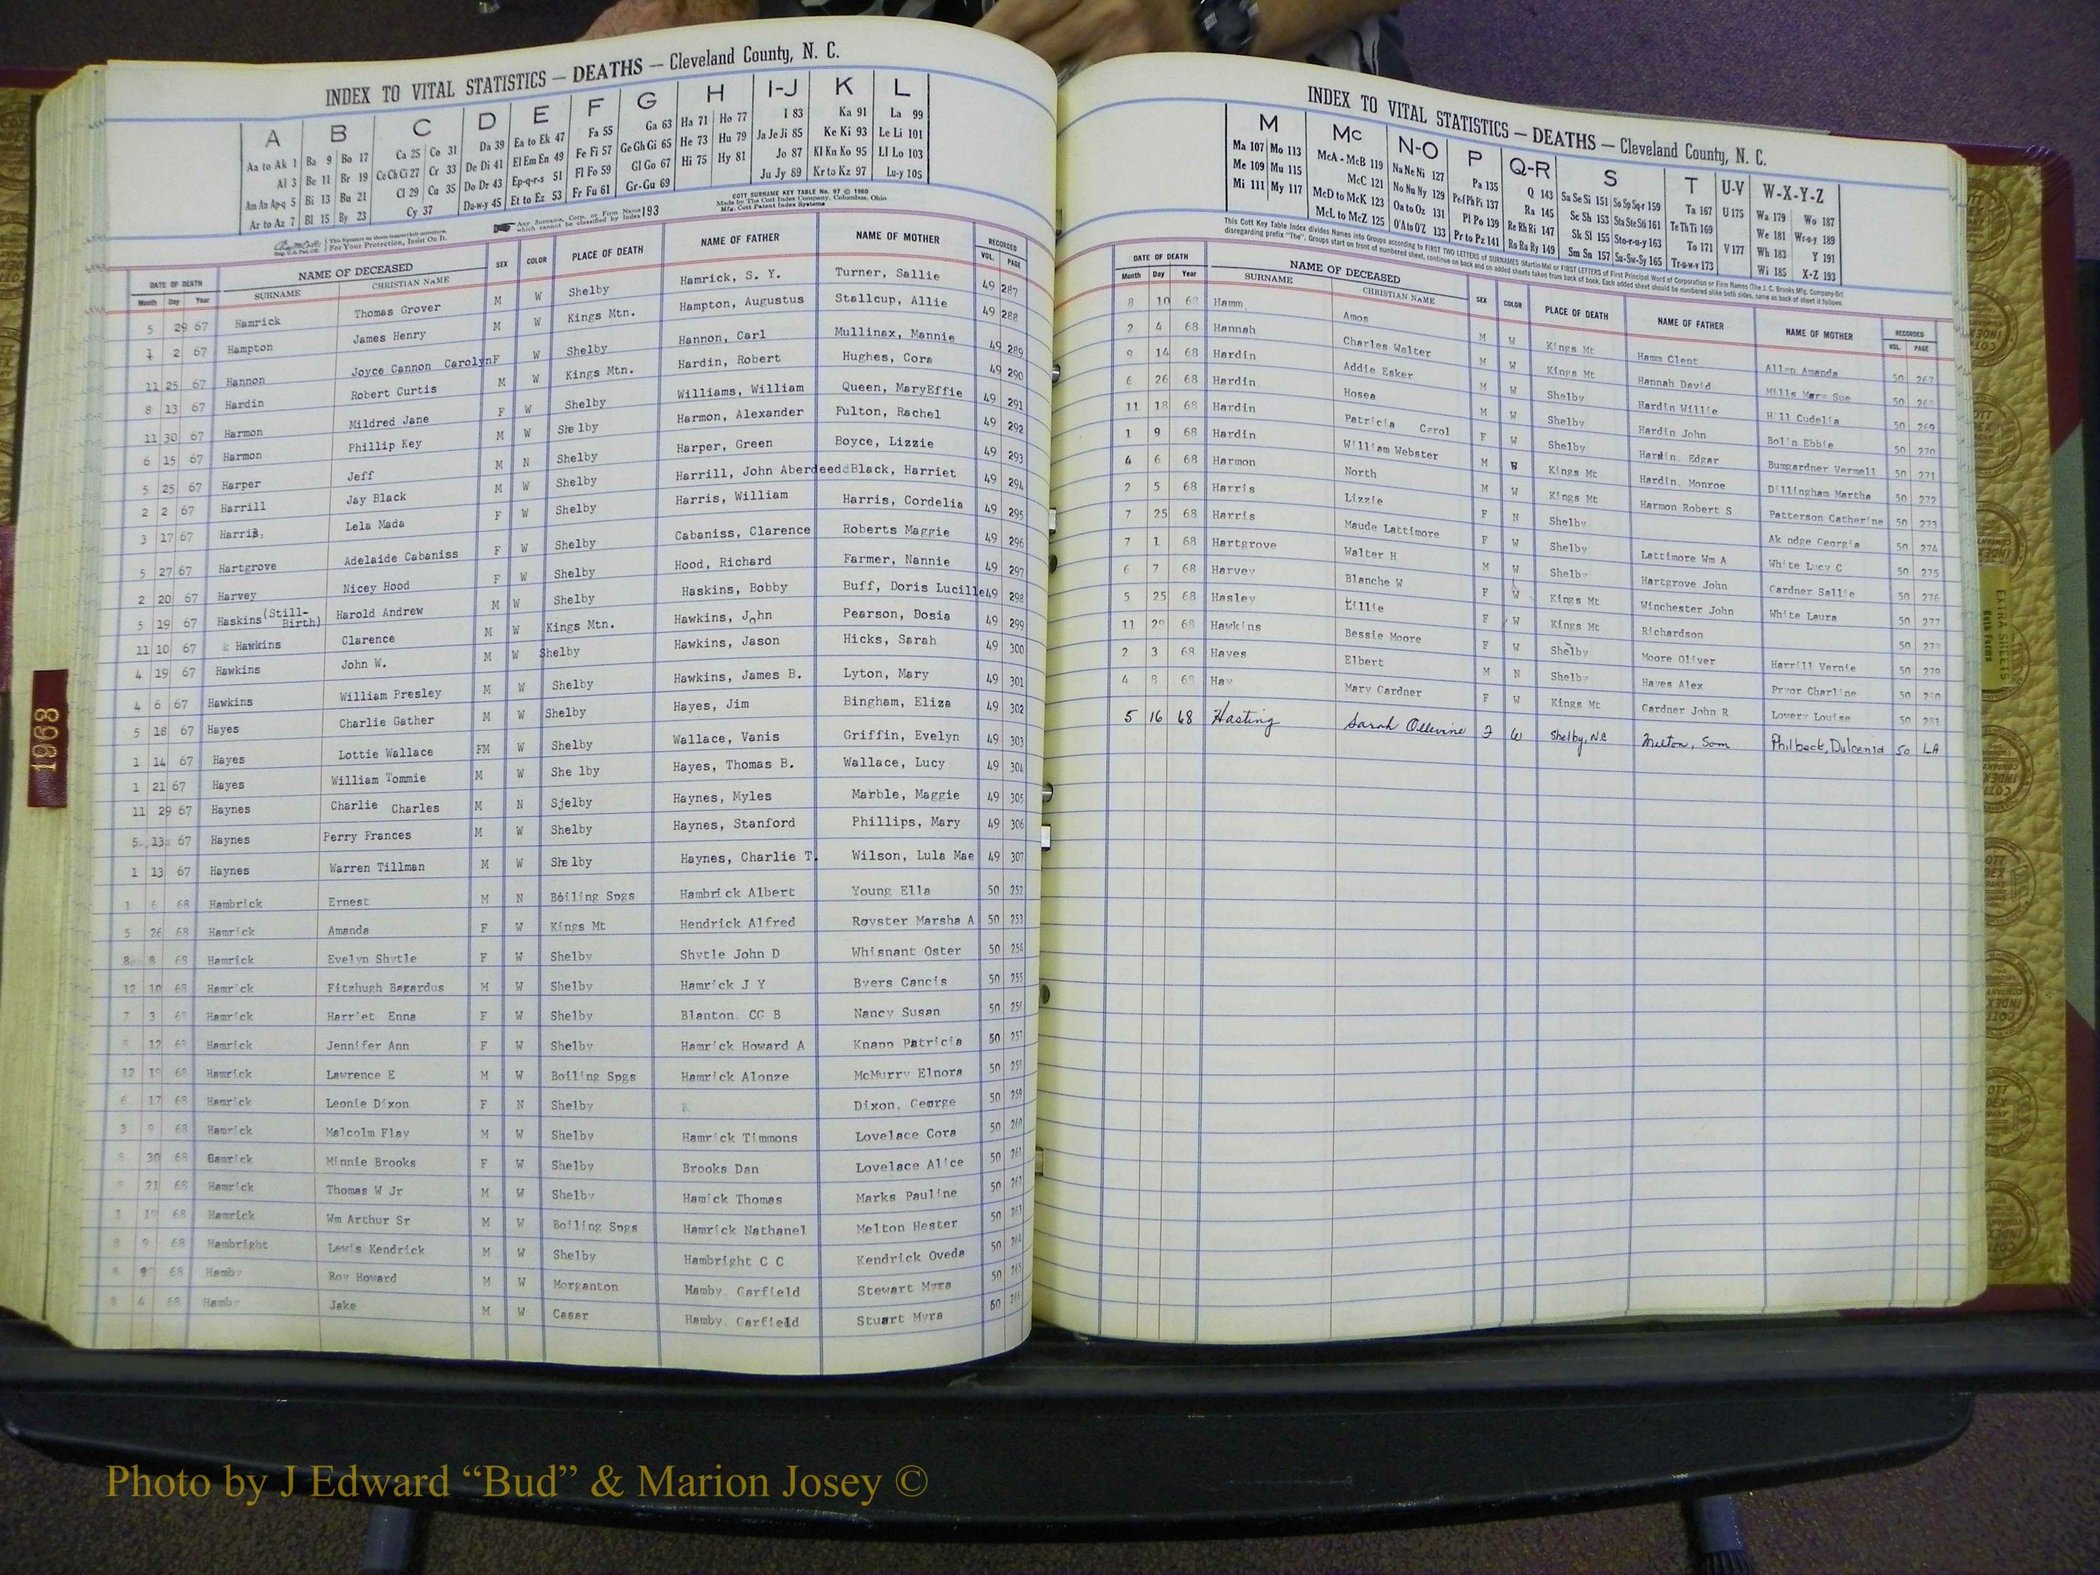 INDEX TO VITAL STATISTICS — DEATHS — Cleveland County, N. C.
A B C D E F G H I-J K L
Aa to Ak 1 Ba 9 Bo 17 Ca 25 Co 31 Da 39 Ea to Ek 47 Fa 55 Ga 63 Ha 71 Ho 77 I 83 Ka 91 La 99
Al 3 Be 11 Br 19 Ce Ch Ci 27 Cr 33 De Di 41 El Em En 49 Fe Fi 57 Ge Gh Gi 65 He 73 Hu 79 Ja Je Ji 85 Ke Ki 93 Le Li 101
Am An Ap-q 5 Bi 13 Bu 21 Cl 29 Cu 35 Do Dr 43 Ep-q-r-s 51 Fl Fo 59 Gl Go 67 Hi 75 Hy 81 Jo 87 Kl Kn Ko 95 Ll Lo 103
Ar to Az 7 Bl 15 By 23 Cy 37 Du-w-y 45 Et to Ez 53 Fr Fu 61 Gr-Gu 69 Ju Jy 89 Kr to Kz 97 Lu-y 105
For Your Protection, Insist On It.
Any Surname, Corp. or Firm Name which cannot be classified by Index 193
COTT SURNAME KEY TABLE No. 97 © 1960
Made by The Cott Index Company, Columbus, Ohio
Mfg. Cott Patent Index Systems
DATE OF DEATH NAME OF DECEASED SEX COLOR PLACE OF DEATH NAME OF FATHER NAME OF MOTHER RECORDED
Month Day Year SURNAME CHRISTIAN NAME VOL. PAGE
5 29 67 Hamrick Thomas Grover M W Shelby Hamrick, S. Y. Turner, Sallie 49 287
1 2 67 Hampton James Henry M W Kings Mtn. Hampton, Augustus Stallcup, Allie 49 288
11 25 67 Hannon Joyce Cannon Carolyn F W Shelby Hannon, Carl Mullinax, Mannie 49 289
8 13 67 Hardin Robert Curtis M W Kings Mtn. Hardin, Robert Hughes, Cora 49 290
11 30 67 Harmon Mildred Jane F W Shelby Williams, William Queen, MaryEffie 49 291
6 15 67 Harmon Phillip Key M W She lby Harmon, Alexander Fulton, Rachel 49 292
5 25 67 Harper Jeff M N Shelby Harper, Green Boyce, Lizzie 49 293
2 2 67 Harrill Jay Black M W Shelby Harrill, John Aberdeed Black, Harriet 49 294
3 17 67 Harris, Lela Mada F W Shelby Harris, William Harris, Cordelia 49 295
5 27 67 Hartgrove Adelaide Cabaniss F W Shelby Cabaniss, Clarence Roberts Maggie 49 296
2 20 67 Harvey Nicey Hood F W Shelby Hood, Richard Farmer, Nannie 49 297
5 19 67 Haskins (Still-Birth) Harold Andrew M W Shelby Haskins, Bobby Buff, Doris Lucille 49 298
11 10 67 Hawkins Clarence M W Kings Mtn. Hawkins, John Pearson, Dosia 49 299
4 19 67 Hawkins John W. M W Shelby Hawkins, Jason Hicks, Sarah 49 300
4 6 67 Hawkins William Presley M W Shelby Hawkins, James B. Lyton, Mary 49 301
5 18 67 Hayes Charlie Gather M W Shelby Hayes, Jim Bingham, Eliza 49 302
1 14 67 Hayes Lottie Wallace FM W Shelby Wallace, Vanis Griffin, Evelyn 49 303
1 21 67 Hayes William Tommie M W She lby Hayes, Thomas B. Wallace, Lucy 49 304
11 29 67 Haynes Charlie Charles M N Sjelby Haynes, Myles Marble, Maggie 49 305
5 13 67 Haynes Perry Frances M W Shelby Haynes, Stanford Phillips, Mary 49 306
1 13 67 Haynes Warren Tillman M W She lby Haynes, Charlie T. Wilson, Lula Mae 49 307
1 6 68 Hambrick Ernest M N Boiling Spgs Hambrick Albert Young Ella 50 252
5 26 68 Hamrick Amanda F W Kings Mt Hendrick Alfred Royster Marsha A 50 253
8 8 68 Hamrick Evelyn Shytle F W Shelby Shytle John D Whisnant Oster 50 254
12 10 68 Hamrick Fitzhugh Bagardus M W Shelby Hamrick J Y Byers Cancis 50 255
7 3 68 Hamrick Harriet Enna F W Shelby Blanton CG B Nancy Susan 50 256
12 68 Hamrick Jennifer Ann F W Shelby Hamrick Howard A Knapp Patricia 50 257
12 68 Hamrick Lawrence E M W Boiling Spgs Hamrick Alonze McMurry Elnora 50 258
6 17 68 Hamrick Leonie Dixon F N Shelby Dixon, George 50 259
3 9 68 Hamrick Malcolm Flay M W Shelby Hamrick Timmons Lovelace Cora 50 260
30 68 Hamrick Minnie Brooks F W Shelby Brooks Dan Lovelace Alice 50 261
21 68 Hamrick Thomas W Jr M W Shelby Hamick Thomas Marks Pauline 50 262
68 Hamrick Wm Arthur Sr M W Boiling Spgs Hamrick Nathanel Melton Hester 50 263
8 9 68 Hambright Lewis Kendrick M W Shelby Hambright C C Kendrick Oveda 50 264
8 68 Hamby Roy Howard M W Morganton Hamby Garfield Stewart Myra 50 265
8 4 68 Hamby Jake M W Casar Hamby Garfield Stuart Myra 50 266
1968
INDEX TO VITAL STATISTICS — DEATHS — Cleveland County, N. C.
M Mc N-O P Q-R S T U-V W-X-Y-Z
Ma 107 Mo 113 McA - McB 119 Na Ne Ni 127 Pa 135 Q 143 Sa Se Si 151 So Sp Sq-r 159 Ta 167 U 175 Wa 179 Wo 187
Me 109 Mu 115 McC 121 No Nu Ny 129 Pe-f Ph Pi 137 Ra 145 Sc Sh 153 Sta Ste Sti 161 Te Th Ti 169 We 181 Wr-u-y 189
Mi 111 My 117 McD to McK 123 Oa to Oz 131 Pl Po 139 Re Rh Ri 147 Sk Sl 155 Sto-r-u-y 163 To 171 V 177 Wh 183 Y 191
McL to McZ 125 O'A to O'Z 133 Pr to Pz 141 Ro Ru Ry 149 Sm Sn 157 Su-Sw-Sy 165 Tr-u-w-y 173 Wi 185 X-Z 193
This Cott Key Table Index divides Names into Groups according to FIRST TWO LETTERS of SURNAMES (Martin-Ma) or FIRST LETTERS of First Principal Word of Corporation or Firm Names (The J. C. Brooks Mfg. Company-Br)
disregarding prefix "The". Groups start on front of numbered sheet, continue on back and on added sheets taken from back of book. Each added sheet should be numbered alike both sides, same as back of sheet it follows.
DATE OF DEATH NAME OF DECEASED SEX COLOR PLACE OF DEATH NAME OF FATHER NAME OF MOTHER RECORDED
Month Day Year SURNAME CHRISTIAN NAME VOL. PAGE
8 10 68 Hamm Amos M W Kings Mt Hamm Clent Allen Amanda 50 267
2 4 68 Hannah Charles Walter M W Kings Mt Hannah David Mills Mary Sue 50 268
9 14 68 Hardin Addie Esker M W Shelby Hardin Willie Hill Cudelia 50 269
6 26 68 Hardin Hosea M W Shelby Hardin John Bolin Ebbie 50 270
11 18 68 Hardin Patricia Carol F W Shelby Hardin Edgar Bumgardner Vermell 50 271
1 9 68 Hardin William Webster M W Kings Mt Hardin Monroe Dillingham Martha 50 272
4 6 68 Harmon North M W Kings Mt Harmon Robert S Patterson Catherine 50 273
2 5 68 Harris Lizzie F N Shelby Georgia 50 274
7 25 68 Harris Maude Lattimore F W Shelby Lattimore Wm A White Lucy C 50 275
7 1 68 Hartgrove Walter H M W Shelby Hartgrove John Gardner Sallie 50 276
6 7 68 Harvey Blanche W F W Kings Mt Winchester John White Laura 50 277
5 25 68 Hasley Lillie F W Kings Mt Richardson 50 278
11 29 68 Hawkins Bessie Moore F W Shelby Moore Oliver Harrill Vernie 50 279
2 3 68 Hayes Elbert M N Shelby Hayes Alex Pryor Charline 50 280
4 8 68 Hay Mary Gardner F W Kings Mt Gardner John R Lowery Louise 50 281
5 16 68 Hasting Sarah Ollevine F W Shelby, N.C Melton, Sam Philback, Dulcenid 50 LA
EXTRA SHEETS
Photo by J Edward “Bud” & Marion Josey ©